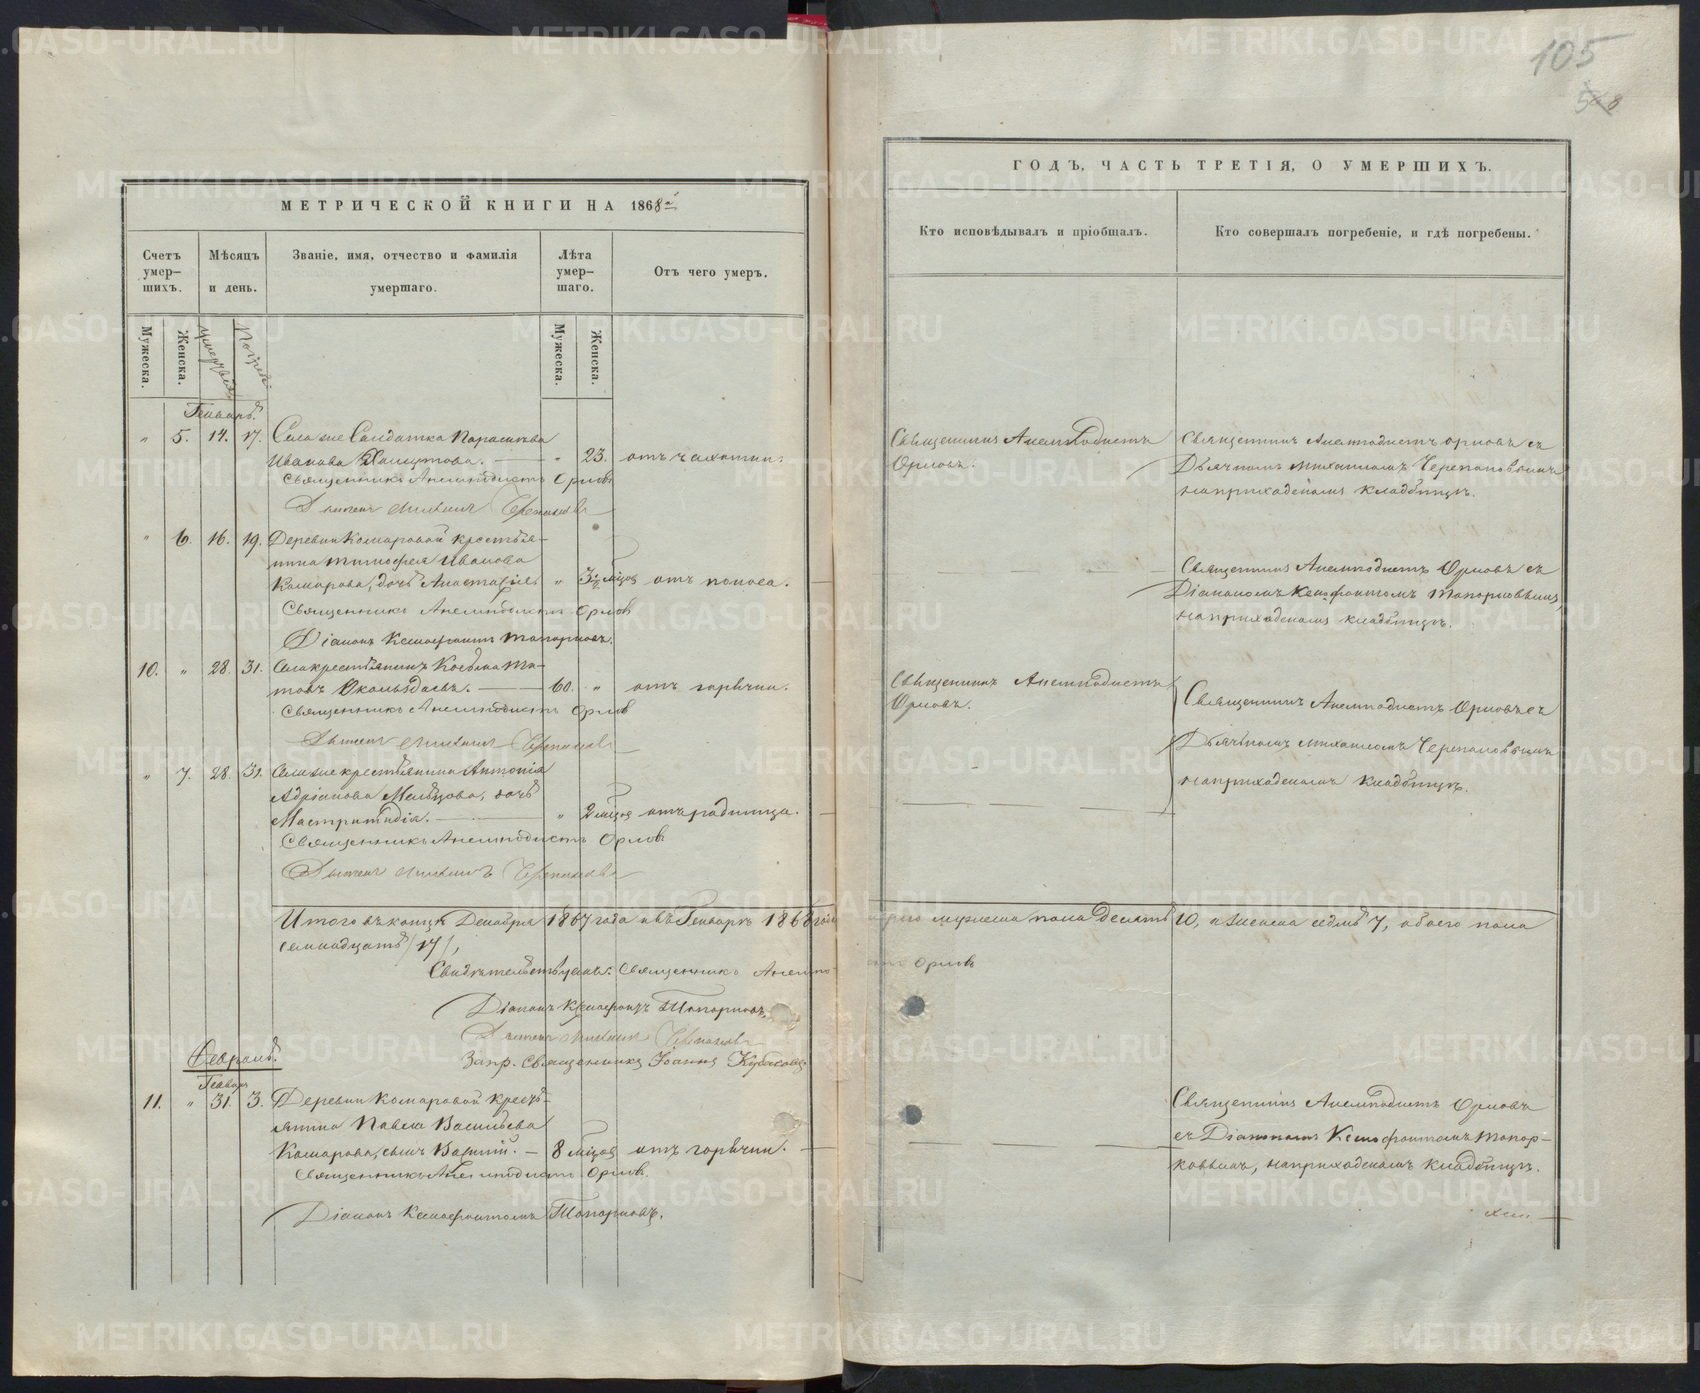 МЕТРИЧЕСКОЙ КНИГИ НА 1868й
Счетъ умер-шихъ.
Мѣсяцъ и день.
Званіе, имя, отчество и фамилія умершаго.
Лѣта умер-шаго.
Отъ чего умеръ.
Мужеска.
Женска.
Мужеска.
Женска.
Генварь.
" 5. 14. 17. Села
Иванова " 23. отъ чахотки.
Священникъ Анемподистъ Орловъ
Дьячекъ Михаилъ Черепановъ
" 6. 16. 19. Деревни Комаровой крестья-
нина Тимофея Иванова
Комарова, дочь Анастасія " 3½ мѣсяц отъ поноса.
Священникъ Анемподистъ Орловъ
Діаконъ Ксенофонтъ Топорковъ.
10. " 28. 31. Села крестьянинъ Косьма Ти-
товъ 60. " отъ горячки.
Священникъ Анемподистъ Орловъ
Дьячекъ Михаилъ Черепановъ
" 7. 28. 31. Села же крестьянина Антонія
Адріанова дочь
" 2 мѣсяц отъ родимца.
Священникъ Анемподистъ Орловъ
Дьячекъ Михаилъ Черепановъ
Итого въ концѣ Декабря 1867 года и въ Генварѣ 1868 года мужеска пола десять 10, и женска седмь 7, обоего пола
семнадцать /17/,
Свидѣтельствуемъ: Священникъ Анемпо- Орловъ
Діаконъ Ксенофонтъ Топорковъ,
Дьячекъ Михаилъ Черепановъ
Февраль.
Генваря
11. " 31. 3. Деревни Комаровой кресть-
янина Павла Васильева
Комарова, сынъ Василій. 8 мѣсяц отъ горячки.
Священникъ Анемподистъ Орловъ.
Діаконъ Ксенофонтъ Топорковъ.
105
ГОДЪ, ЧАСТЬ ТРЕТІЯ, О УМЕРШИХЪ.
Кто исповѣдывалъ и пріобщалъ.
Кто совершалъ погребеніе, и гдѣ погребены.
Священникъ Анемподистъ
Орловъ.
Священникъ Анемподистъ Орловъ съ
Дьячкомъ Михаиломъ Черепановымъ
на приходскомъ кладбищѣ.
Священникъ Анемподистъ Орловъ съ
Діакономъ Ксенофонтомъ Топорковымъ,
на приходскомъ кладбищѣ.
Священникъ Анемподистъ
Орловъ.
Священникъ Анемподистъ Орловъ съ
Дьячкомъ Михаиломъ Черепановымъ
на приходскомъ кладбищѣ.
Священникъ Анемподистъ Орловъ
съ Діакономъ Ксенофонтомъ Топор-
ковымъ, на приходскомъ кладбищѣ.
METRIKI.GASO-URAL.RU